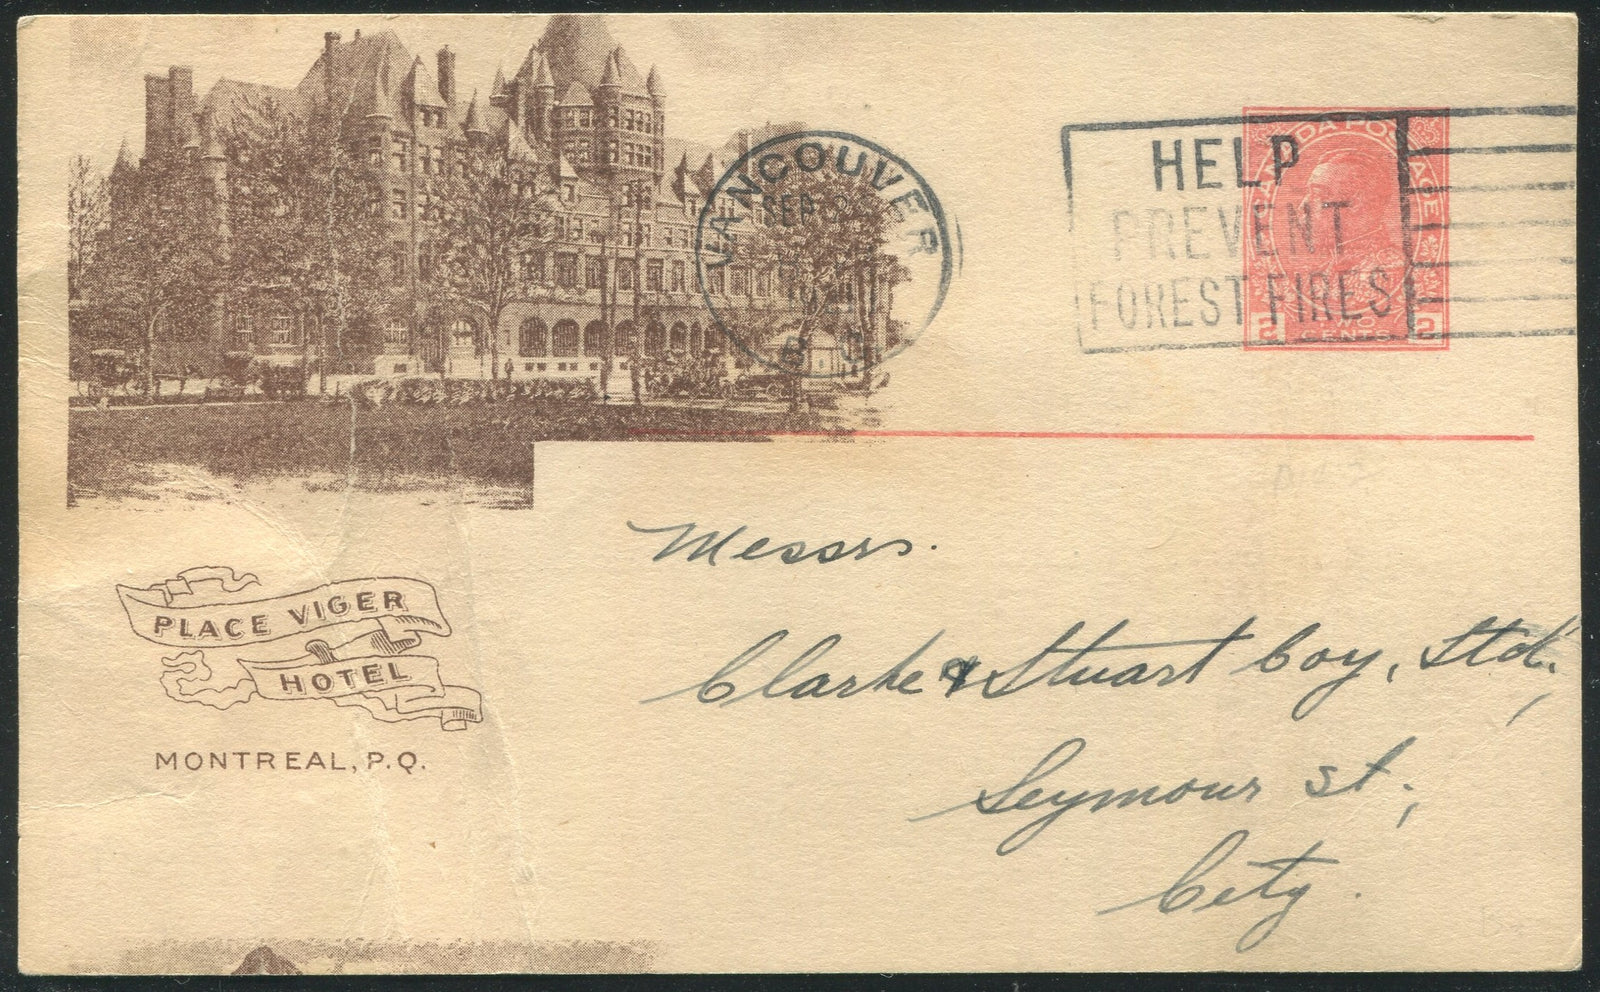 VANCOUVER
SEP
B C
HELP
PREVENT
FOREST FIRES
CANADA POSTAGE
2 TWO CENTS 2
PLACE VIGER
HOTEL
MONTREAL, P.Q.
Messrs.
Clarke & Stuart Coy, Ltd.,
Seymour St.,
City.